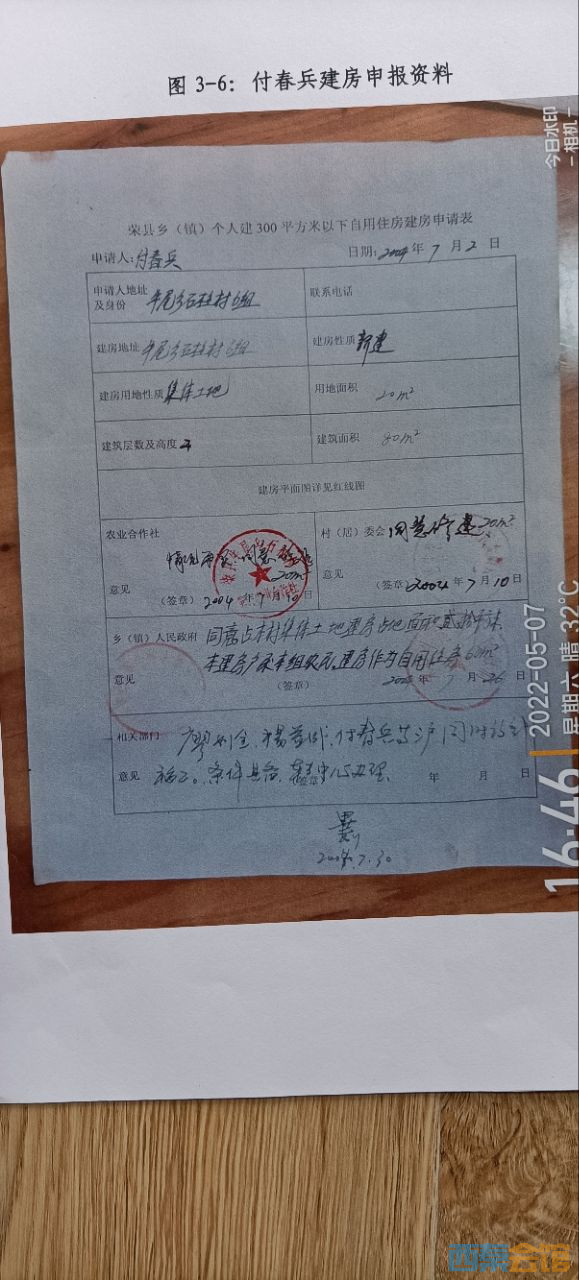 图 3-6：付春兵建房申报资料
今日水印
-相机-
荣县乡（镇）个人建300平方米以下自用住房建房申请表
申请人:付春兵 日期:2004年7月2日
申请人地址及身份 牟尾乡石柱村6组 联系电话
建房地址 牟尾乡石柱村6组 建房性质 新建
建房用地性质 集体土地 用地面积 20m²
建筑层数及高度 建筑面积 80m²
建房平面图详见红线图
农业合作社 村（居）委会 同意修建20m²
情况 同意 20m²
意见 意见
（签章）2004年7月10日 （签章）2004年7月10日
乡（镇）人民政府 同意占本村集体土地建房占地面积贰拾平米
本组农民,建房作为自用住房 60m²
意见 （签章） 年7月26日
相关部门 付春兵 同时
意见 条件具备 办理 年 月 日
2004.7.30
16:46
2022-05-07
星期六 晴 32°C
西蔡会馆